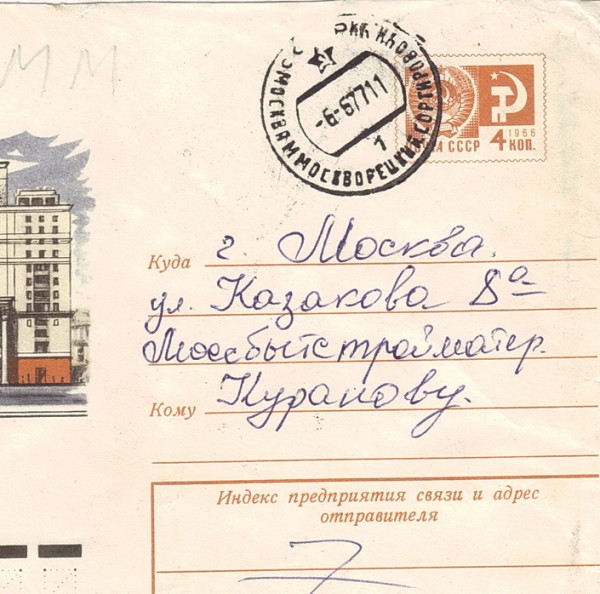 ММ
МОСКВА М МОСКВОРЕЦКИЙ СОРТИРОВОЧН
-6-67711
1
ПОЧТА СССР
1966
4 КОП.
Куда г. Москва.
ул. Казакова 8а
Мосбытстройматер.
Кому Куракову.
Индекс предприятия связи и адрес
отправителя